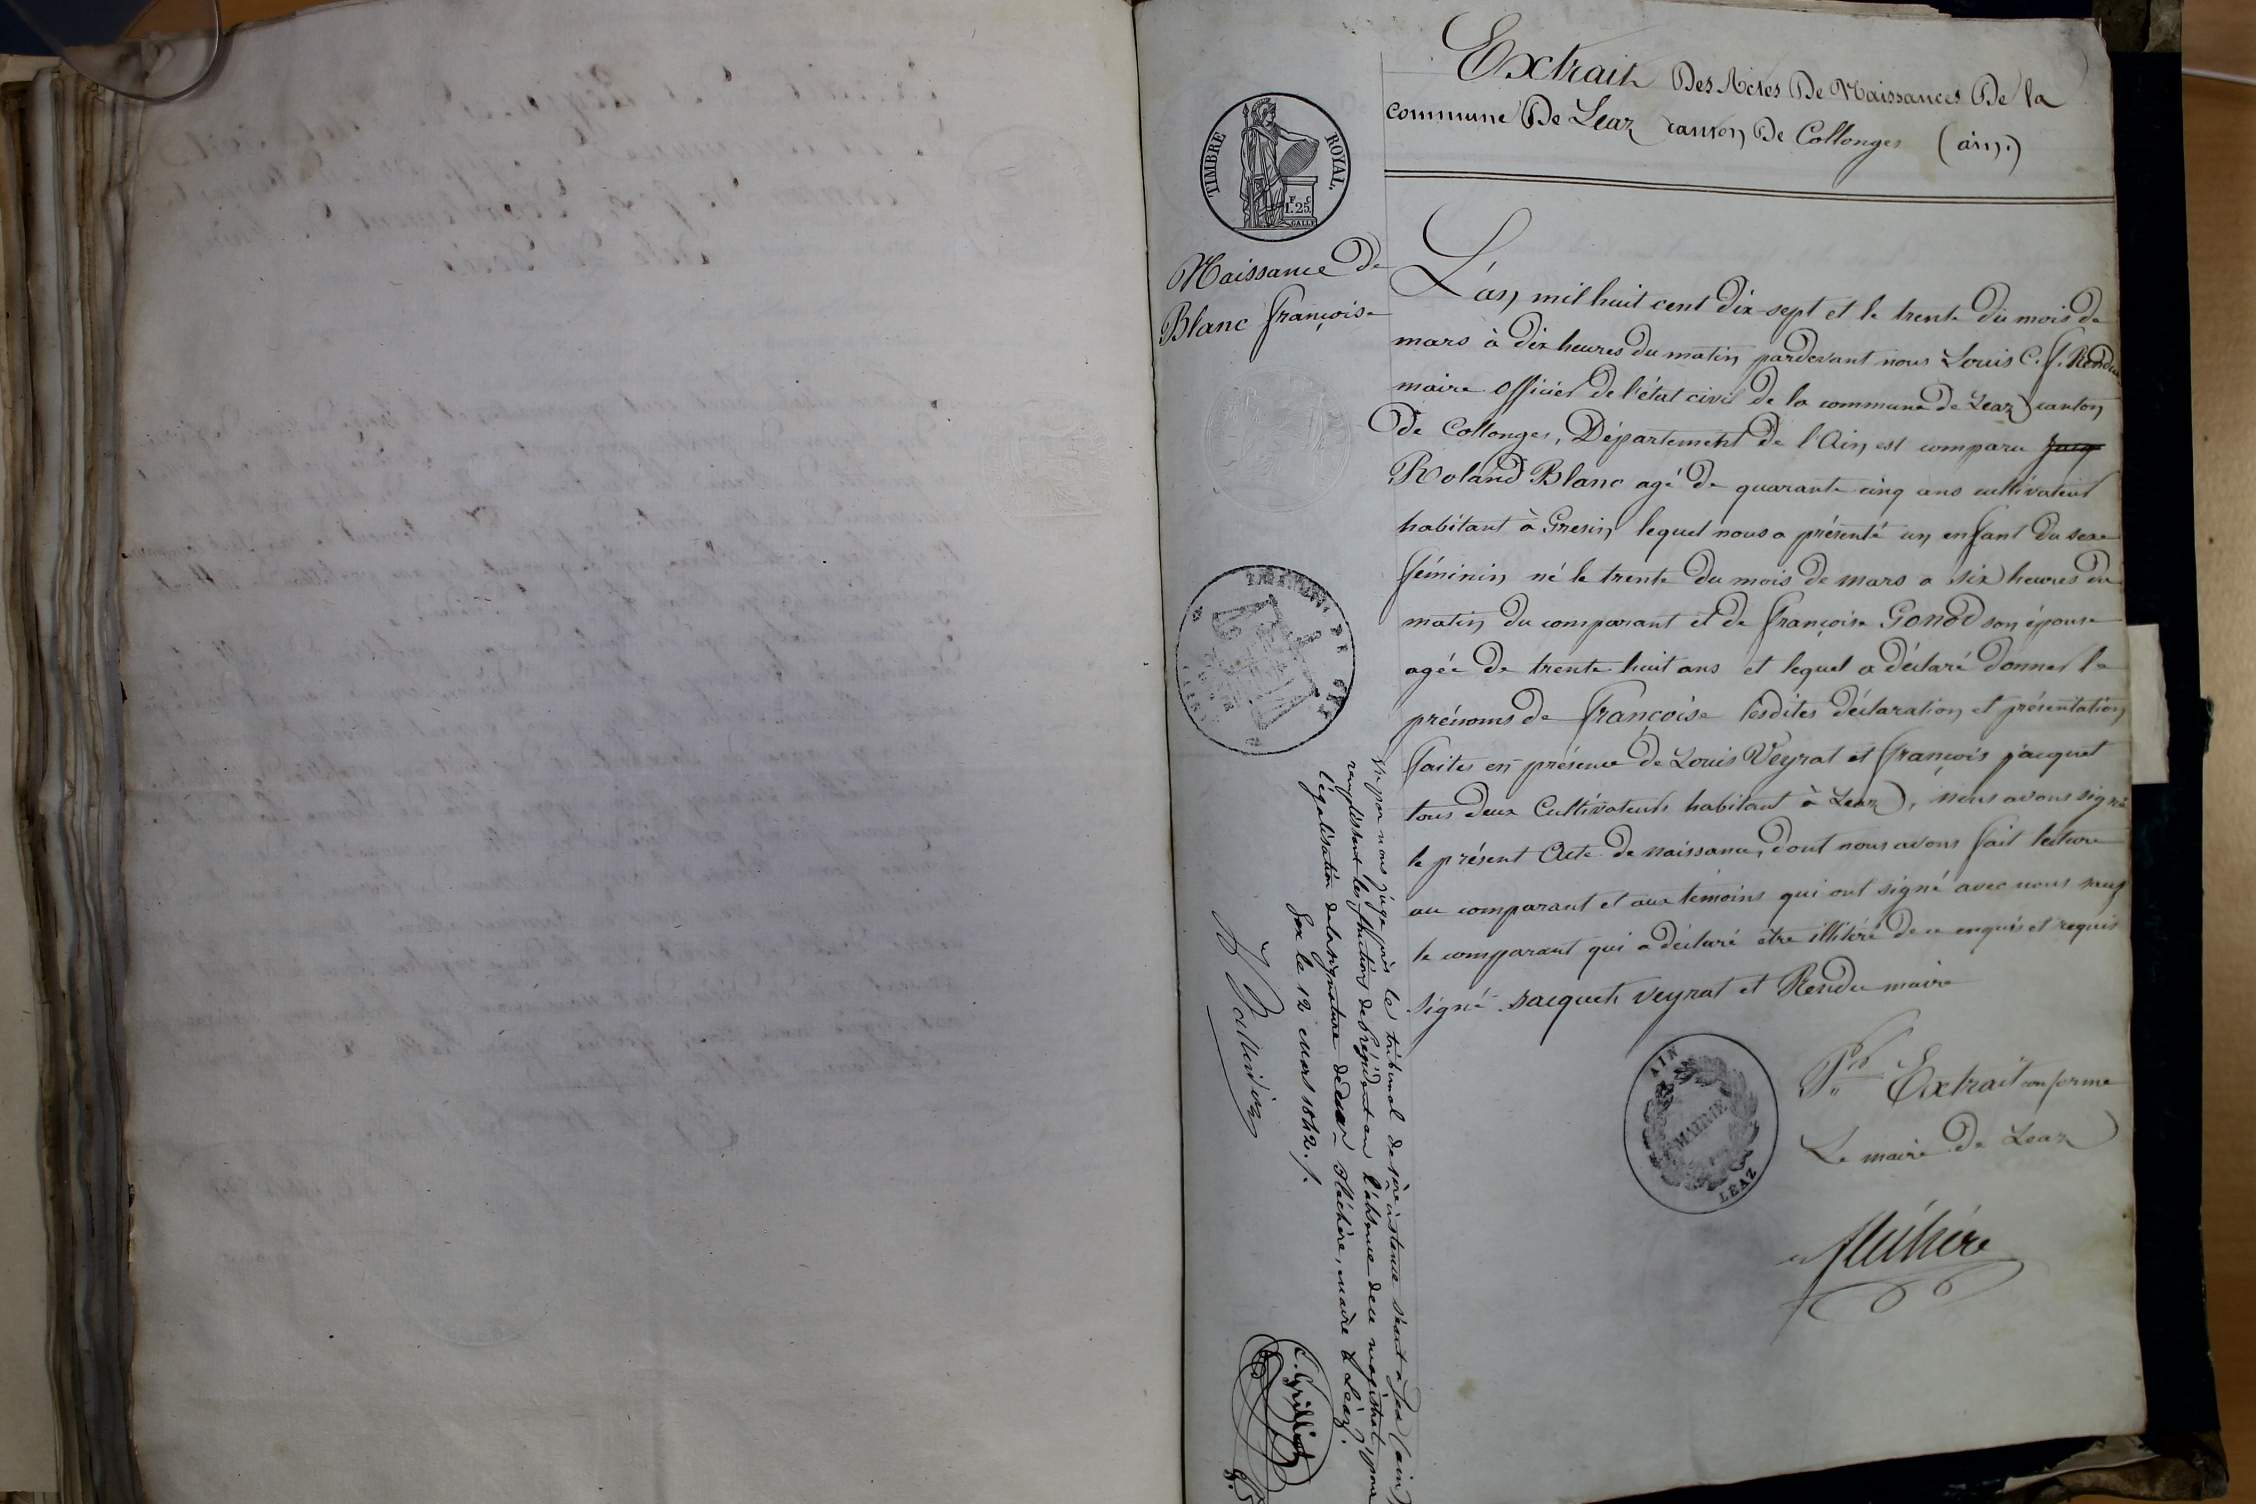 Extrait Des Actes De Naissances De la
commune De Leaz canton De Collonges (ain.)
TIMBRE ROYAL.
F C
1.25
Naissance de
Blanc françoise
L'an mil huit cent dix-sept et le trente du mois de
mars à dix heures du matin pardevant nous Louis C. f. Rendu
maire officier de l'état civil de la commune de Leaz canton
De Collonges, Département de l'Ain est comparu
Roland Blanc agé de quarante cinq ans cultivateur
habitant à Gresin lequel nous a présenté un enfant du sexe
féminin né le trente du mois de mars a six heures du
matin du comparant et de françoise Gonod son épouse
agée de trente-huit ans et lequel a déclaré donner le
prénoms de françoise lesdites déclaration et présentation
faites en présence de Louis Veyrat et françois jacquet
tous deux Cultivateurs habitant à Leaz, nous avons signé
le présent Acte de naissance, dont nous avons fait lecture
au comparant et aux témoins qui ont signé avec nous sauf
le comparant qui a déclaré être illitéré de ce enquis et requis
signé Jacquet veyrat et Rendu maire
Pr Extrait conforme
Le maire de Leaz
fléchère
AIN
MAIRIE
LEAZ
TRIBUNAL DE GEX
Vu par nous juge près le tribunal de 1ère instance séant à Gex (ain)
remplissant les fonctions de Président en l'absence de ce magistrat, pour
légalisation de la signature de Mr fléchère, maire de Léaz.
Gex le 12 Mars 1842./.
C. Grilliet